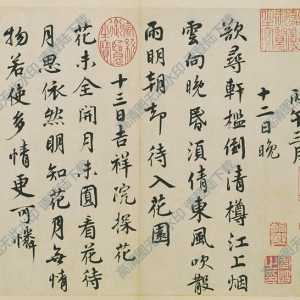 十二日晚
欲尋軒檻倒清樽江上烟
雲向晚昏須倩東風吹散
雨明朝却待入花園
十三日吉祥院探花
花未全開月未圓看花待
月思依然明知花月無情
物若使多情更可憐